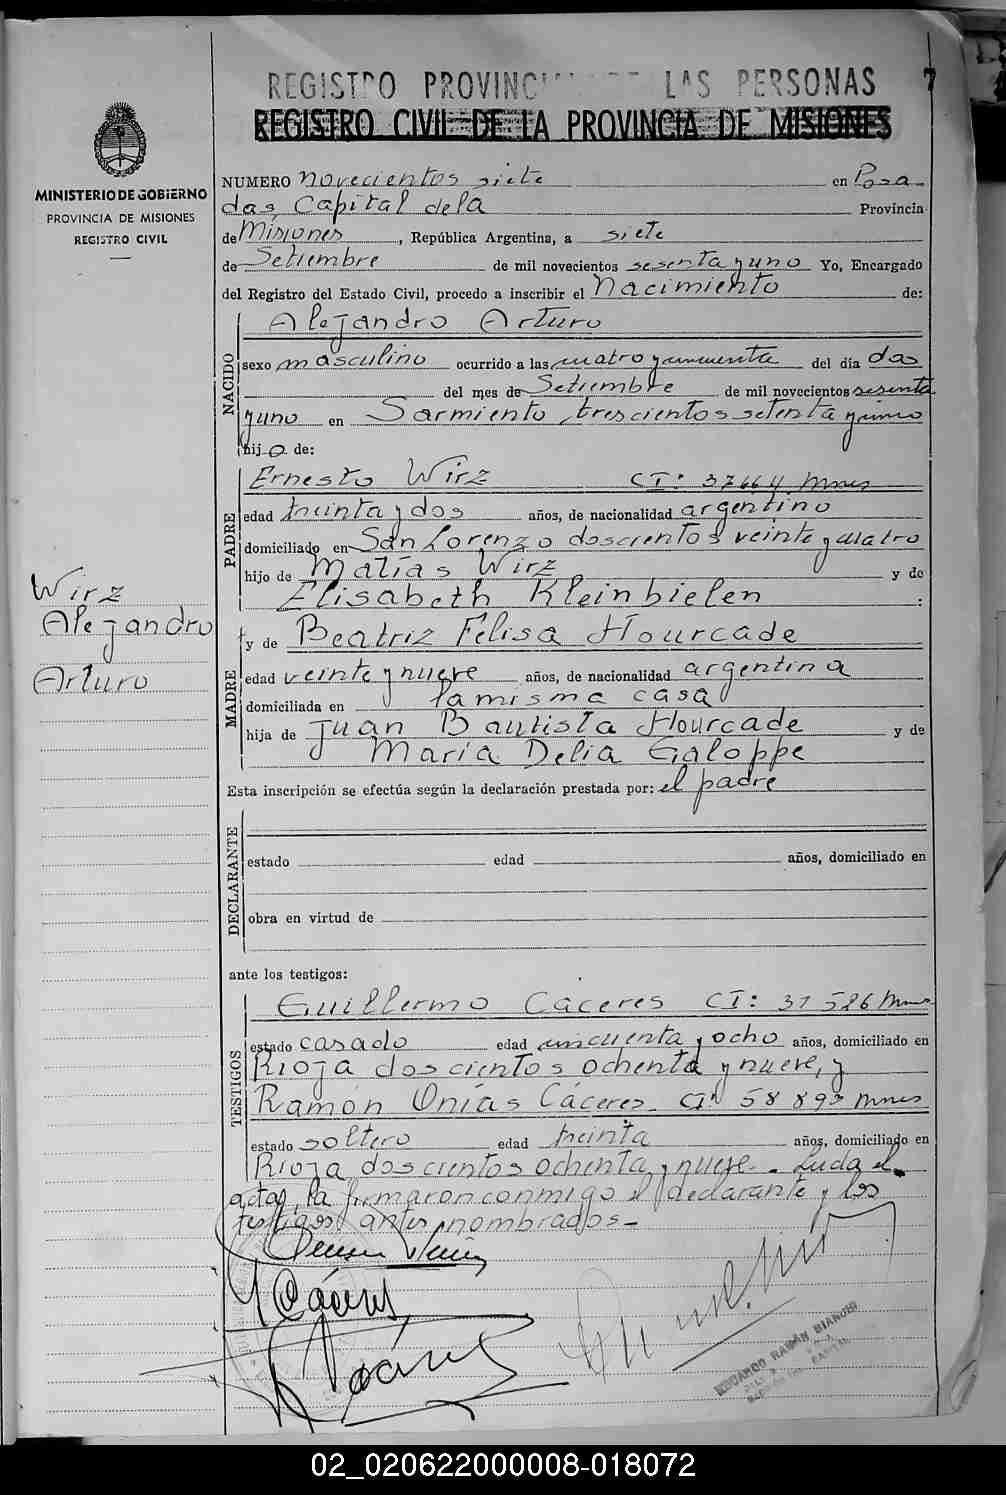 7
REGISTRO PROVINC LAS PERSONAS
REGISTRO CIVIL DE LA PROVINCIA DE MISIONES
MINISTERIO DE GOBIERNO
PROVINCIA DE MISIONES
REGISTRO CIVIL
NUMERO novecientos siete en Posa-
das, Capital dela Provincia
de Misiones, República Argentina, a siete
de Setiembre de mil novecientos sesenta y uno Yo, Encargado
del Registro del Estado Civil, procedo a inscribir el Nacimiento de:
NACIDO
Alejandro Arturo
sexo masculino ocurrido a las cuatro y cincuenta del día dos
del mes de Setiembre de mil novecientos sesenta
y uno en Sarmiento, trescientos setenta y cinco
hijo de:
PADRE
Ernesto Wirz CI: 37664 Mnes
edad treinta y dos años, de nacionalidad argentino
domiciliado en San Lorenzo doscientos veinte y cuatro
hijo de Matías Wirz y de
Elisabeth Kleinbielen :
Wirz
Alejandro
Arturo
MADRE
y de Beatriz Felisa Hourcade
edad veinte y nueve años, de nacionalidad argentina
domiciliada en la misma casa
hija de Juan Bautista Hourcade y de
María Delia Galoppe
Esta inscripción se efectúa según la declaración prestada por: el padre
DECLARANTE
estado edad años, domiciliado en
obra en virtud de
ante los testigos:
TESTIGOS
Guillermo Cáceres CI: 31526 Mnes
estado casado edad cincuenta y ocho años, domiciliado en
Rioja doscientos ochenta y nueve, y
Ramón Onías Cáceres CI: 58893 Mnes
estado soltero edad treinta años, domiciliado en
Rioja doscientos ochenta y nueve. Leída el
acta, la firmaron conmigo el declarante y los
testigos antes nombrados.-
Cáceres
Cáceres
EDUARDO RAMÓN BIANCHI
02_020622000008-018072